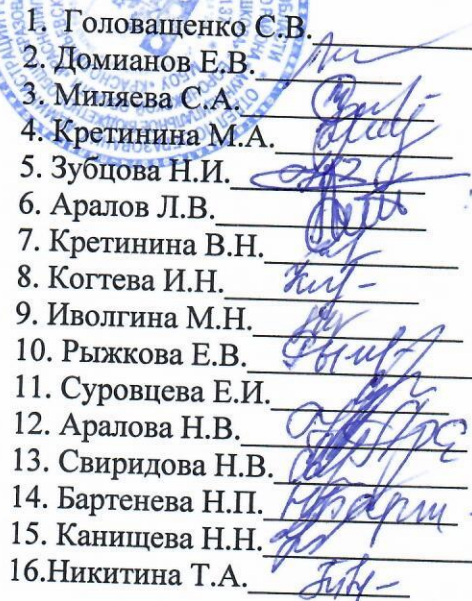 1. Головащенко С.В.
2. Домианов Е.В.
3. Миляева С.А.
4. Кретинина М.А.
5. Зубцова Н.И.
6. Аралов Л.В.
7. Кретинина В.Н.
8. Когтева И.Н.
9. Иволгина М.Н.
10. Рыжкова Е.В.
11. Суровцева Е.И.
12. Аралова Н.В.
13. Свиридова Н.В.
14. Бартенева Н.П.
15. Канищева Н.Н.
16.Никитина Т.А.